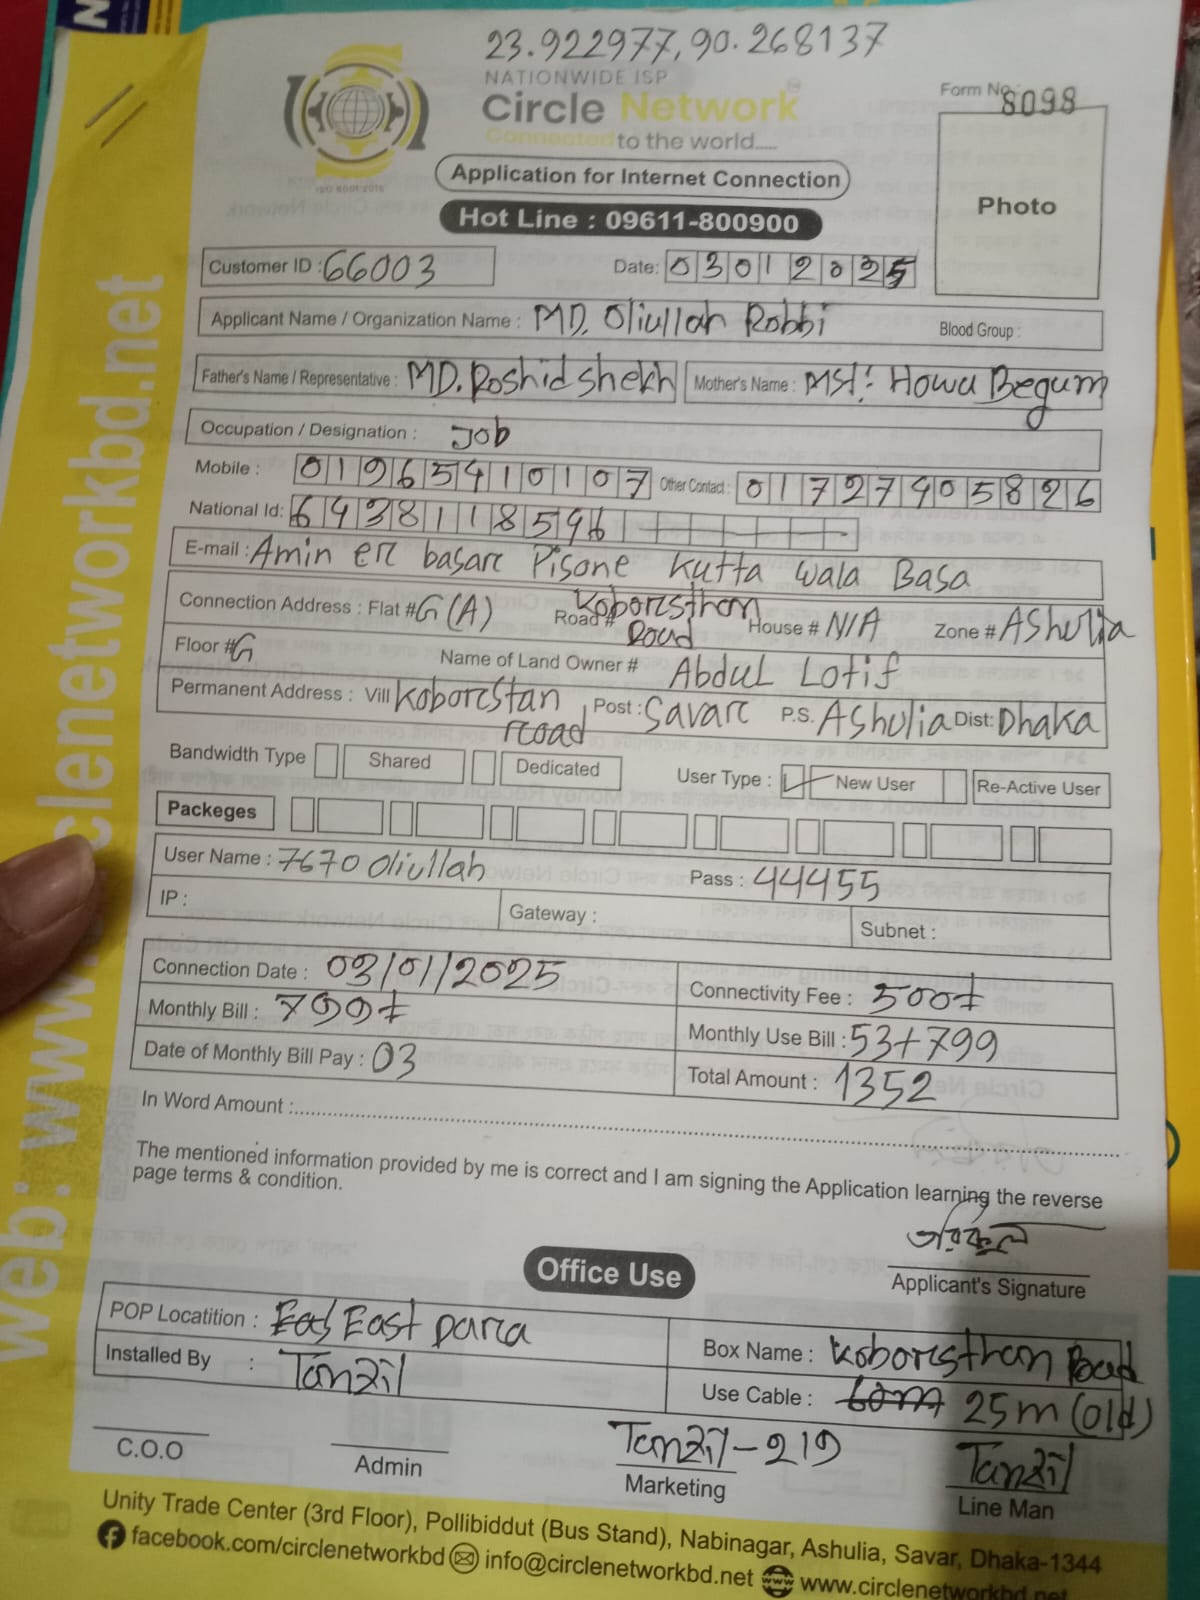 23.922977, 90.268137
NATIONWIDE ISP
Circle Network
Connected to the world.....
ISO 9001:2015
Form No.: 8098
Application for Internet Connection
Photo
Hot Line : 09611-800900
Customer ID : 66003 Date: 03012025
Applicant Name / Organization Name : MD. Oliullah Robbi Blood Group :
Father's Name / Representative : MD. Roshid shekh Mother's Name : MSt: Howa Begum
Occupation / Designation : Job
Mobile : 01965410107 Other Contact : 01727405826
National Id: 6438118596
E-mail : Amin er basar Pisone Kutta wala Basa
Connection Address : Flat # G(A) Road # Koborsthan Road House # N/A Zone # AShulia
Floor # G Name of Land Owner # Abdul Lotif
Permanent Address : Vill Koborstan road Post : Savar P.S. AShulia Dist: Dhaka
Bandwidth Type Shared Dedicated User Type : New User Re-Active User
Packeges
User Name : 7670 Oliullah Pass : 44455
IP : Gateway : Subnet :
Connection Date : 03/01/2025 Connectivity Fee : 500৳
Monthly Bill : 799৳ Monthly Use Bill : 53+799
Date of Monthly Bill Pay : 03 Total Amount : 1352
In Word Amount :
The mentioned information provided by me is correct and I am signing the Application learning the reverse
page terms & condition.
Applicant's Signature
Office Use
POP Locatition : East Para Box Name : Koborsthan Road
Installed By : Tanzil Use Cable : 60m 25m (old)
Tanzil-219 Tanzil
C.O.O Admin Marketing Line Man
Unity Trade Center (3rd Floor), Pollibiddut (Bus Stand), Nabinagar, Ashulia, Savar, Dhaka-1344
facebook.com/circlenetworkbd info@circlenetworkbd.net www.circlenetworkbd.net
web: www.circlenetworkbd.net